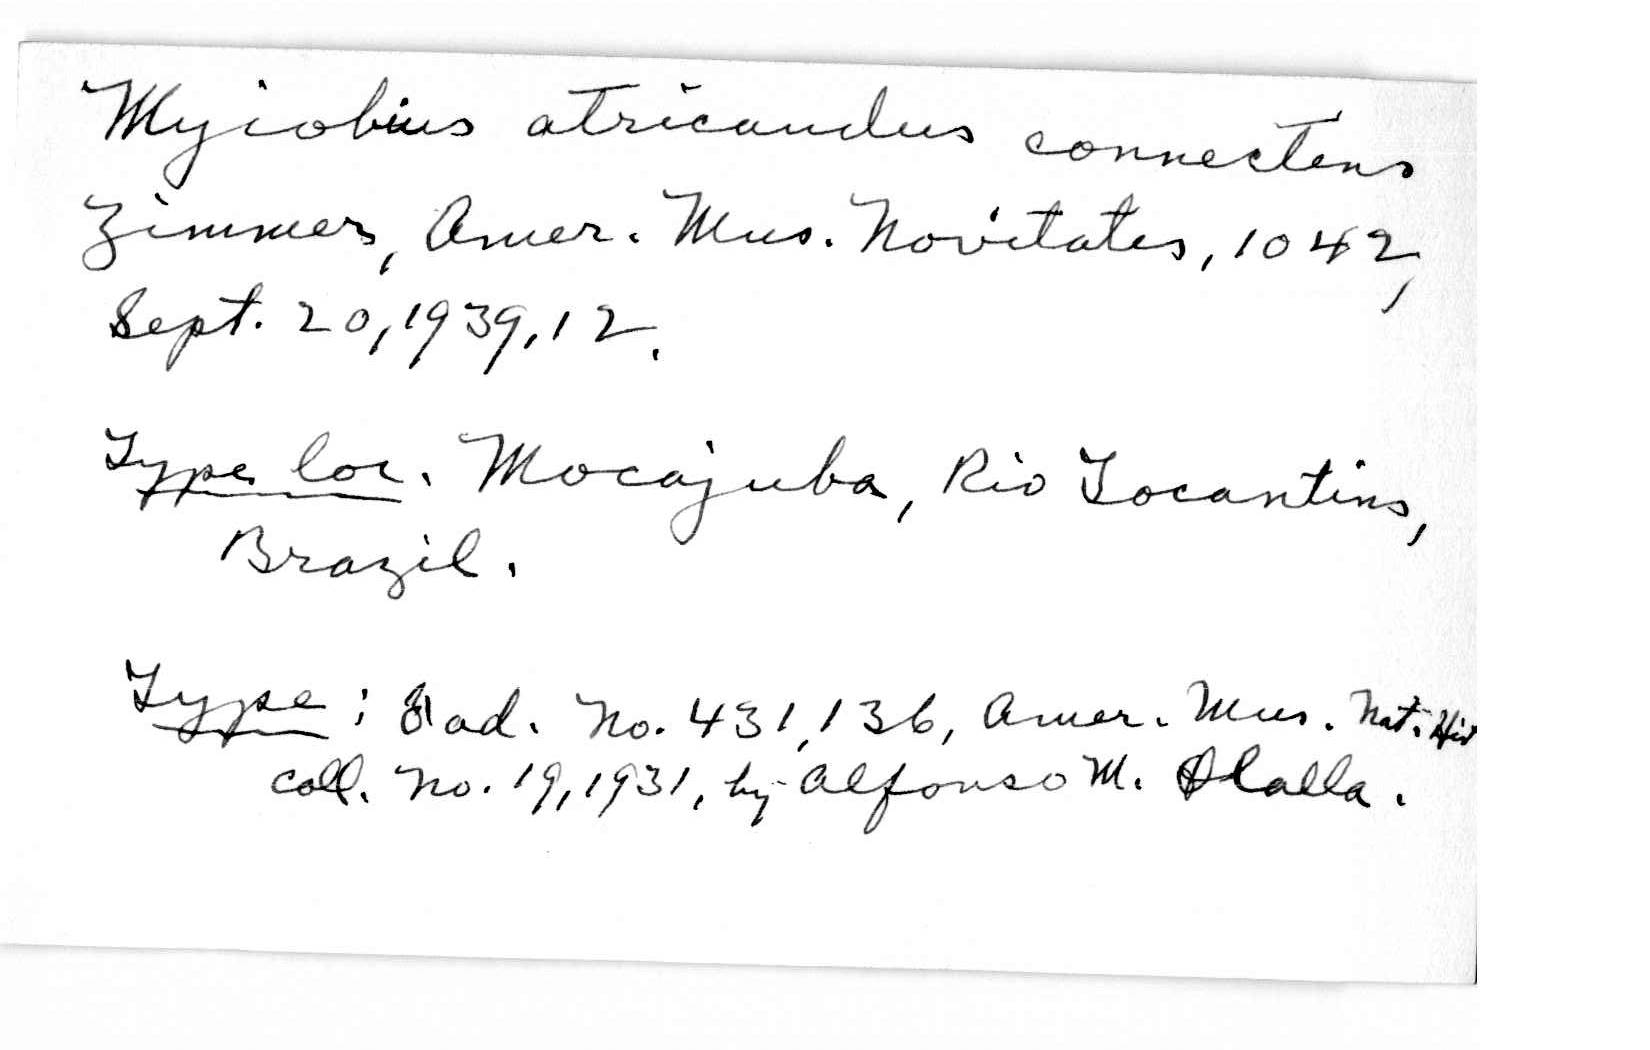 Myiobius atricaudus connectens
Zimmer, Amer. Mus. Novitates, 1042,
Sept. 20, 1939, 12.
Type loc. Mocajuba, Rio Tocantins,
Brazil.
Type: ad. No. 431,136, Amer. Mus. Nat. His
coll. No. 19, 1931, by Alfonso M. Olalla.